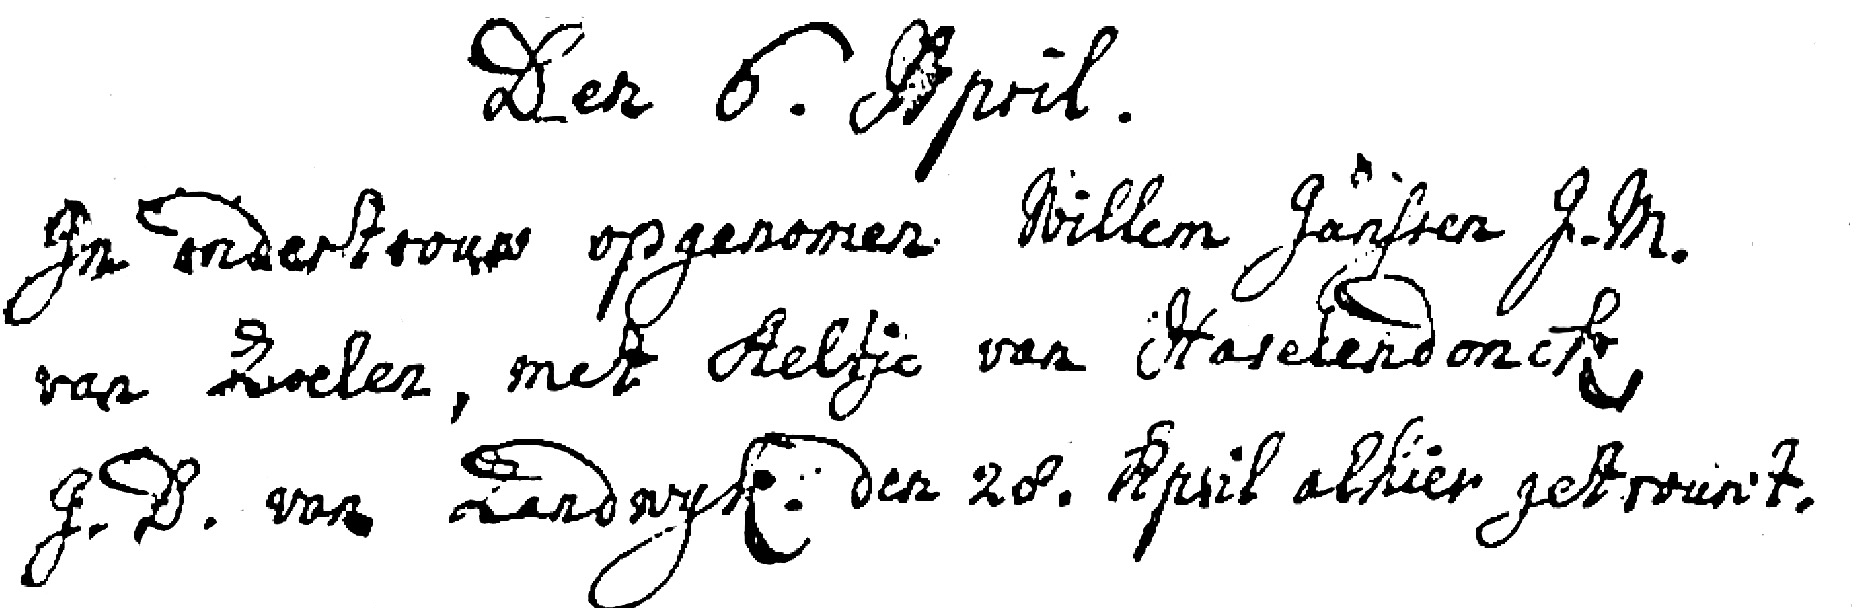 Den 6. April.
In ondertrouw opgenomen Willem Janssen J.M.
van Zoelen, met Aeltje van Haselendonck
J.D. van Zandwyk: den 28. April alhier getrouwt.